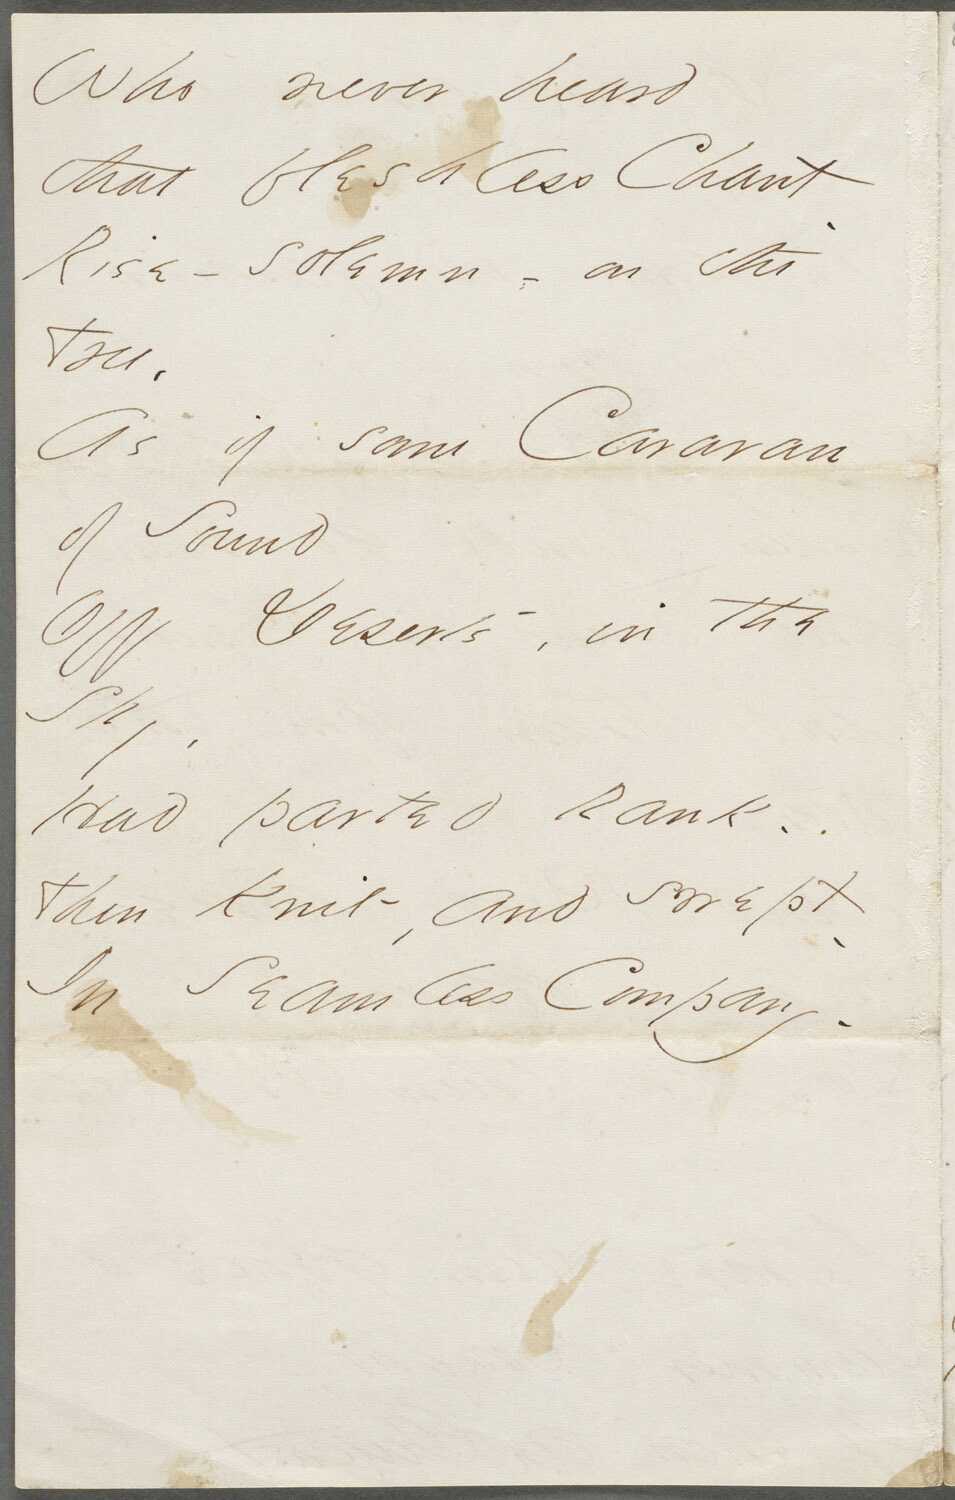 Who never heard
that fleshless Chant
Rise - solemn - on the
Tree.
As if some Caravan
of Sound
Off Deserts, in the
Sky.
Had parted Rank..
Then Knit, and swept
In Seamless Company.